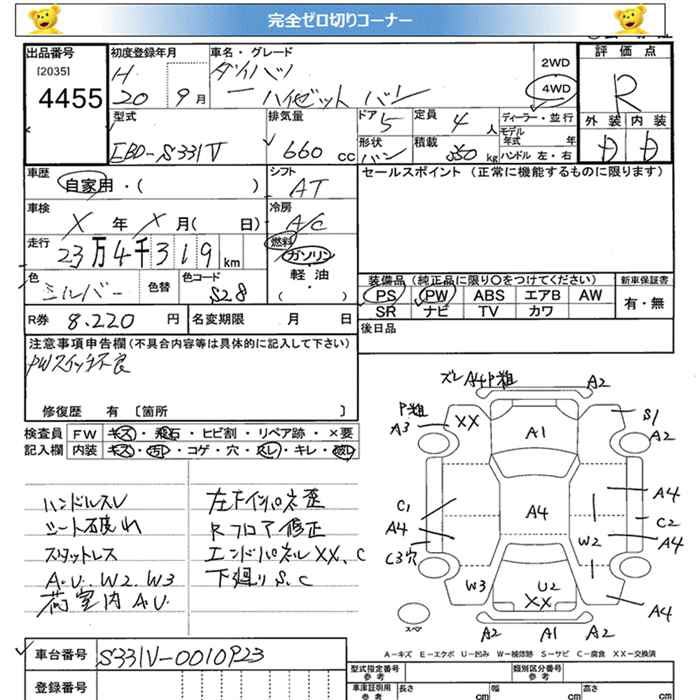 完全ゼロ切りコーナー
出品番号
[2035]
4455
初度登録年月
H 20 9月
車名・グレード
ダイハツ
ハイゼット バン
2WD
4WD
評価点
R
外装 内装
D D
型式
EBD-S331V
排気量
660 cc
ドア 5
形状 バン
定員 4 人
積載 350 kg
ディーラー・並行
モデル年式 年
ハンドル 左・右
車歴
自家用・( )
シフト
AT
車検
X 年 X 月( 日)
冷房
A/C
走行
23万4千319 km
燃料
ガソリン
軽油
( )
色
シルバー
色替
色コード
S28
R券 8.220 円
名変期限 月 日
セールスポイント (正常に機能するものに限ります)
装備品 (純正品に限り○をつけてください)
PS PW ABS エアB AW
SR ナビ TV カワ
新車保証書
有・無
後日品
注意事項申告欄(不具合内容等は具体的に記入して下さい)
PWスイッチ不良
修復歴 有 〔箇所 〕
検査員 FW キズ・飛石・ヒビ割・リペア跡・×要
記入欄 内装 キズ・汚レ・コゲ・穴・スレ・キレ・破レ
ハンドルスレ
シート破れ
スタットレス
A.U. W2. W3
荷室内 A.U.
左Fインパネ歪
Rフロア修正
エンドパネルXX、C
下廻りS.C
ズレ A4 P粗
A2
P粗
A3
XX
A1
S1
A2
C1
A4
C3穴
A4
A4
C2
A4
W2
W3
U2
XX
A4
スペア
A2
A1
A2
A－キズ E－エクボ U－凹み W－補修跡 S－サビ C－腐食 XX－交換済
車台番号
S331V-0010923
登録番号
型式指定番号
参考
類別区分番号
参考
車庫証明用
参考
長さ cm
幅 cm
高さ cm